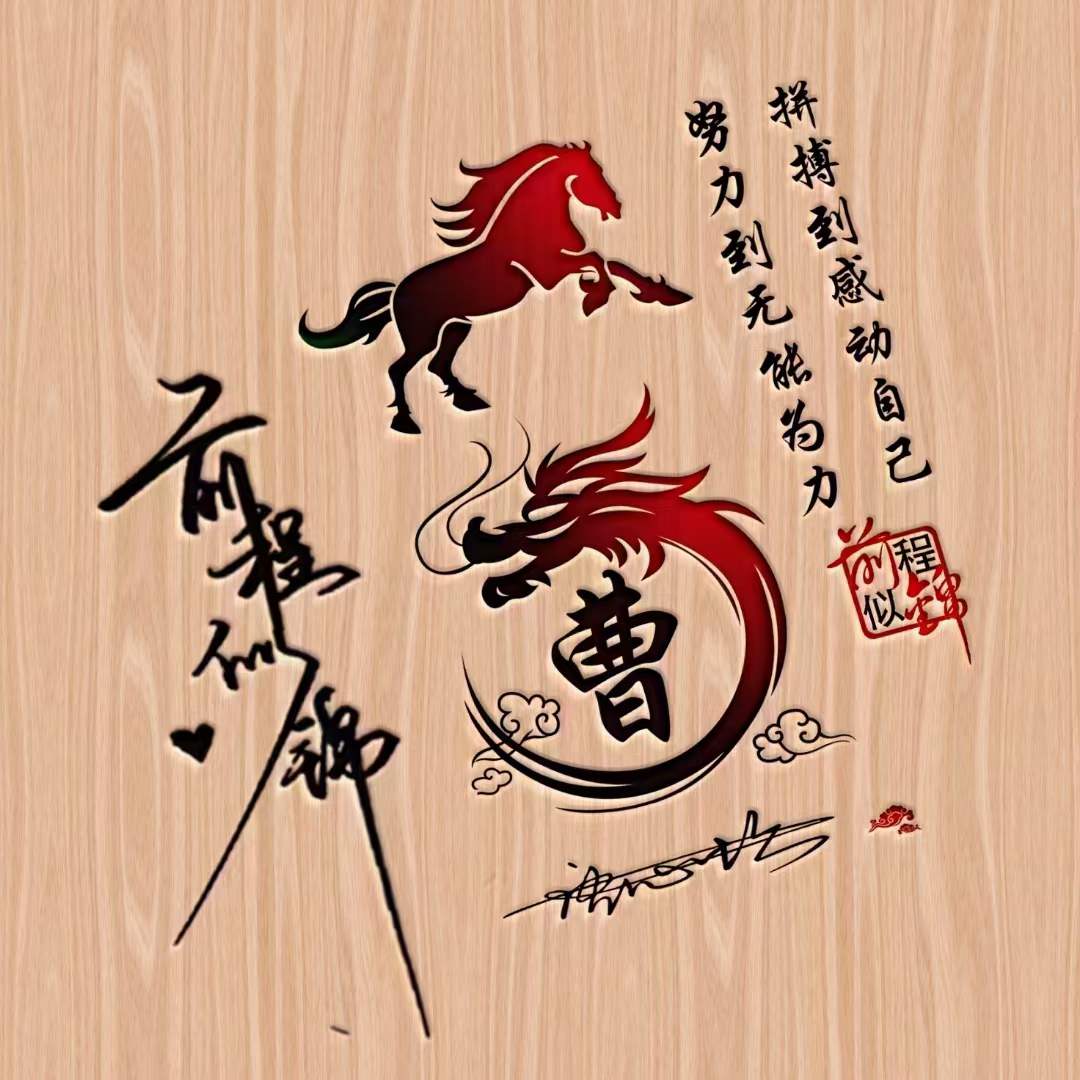 拼搏到感动自己
努力到无能为力
前程似锦
曹
前程似锦